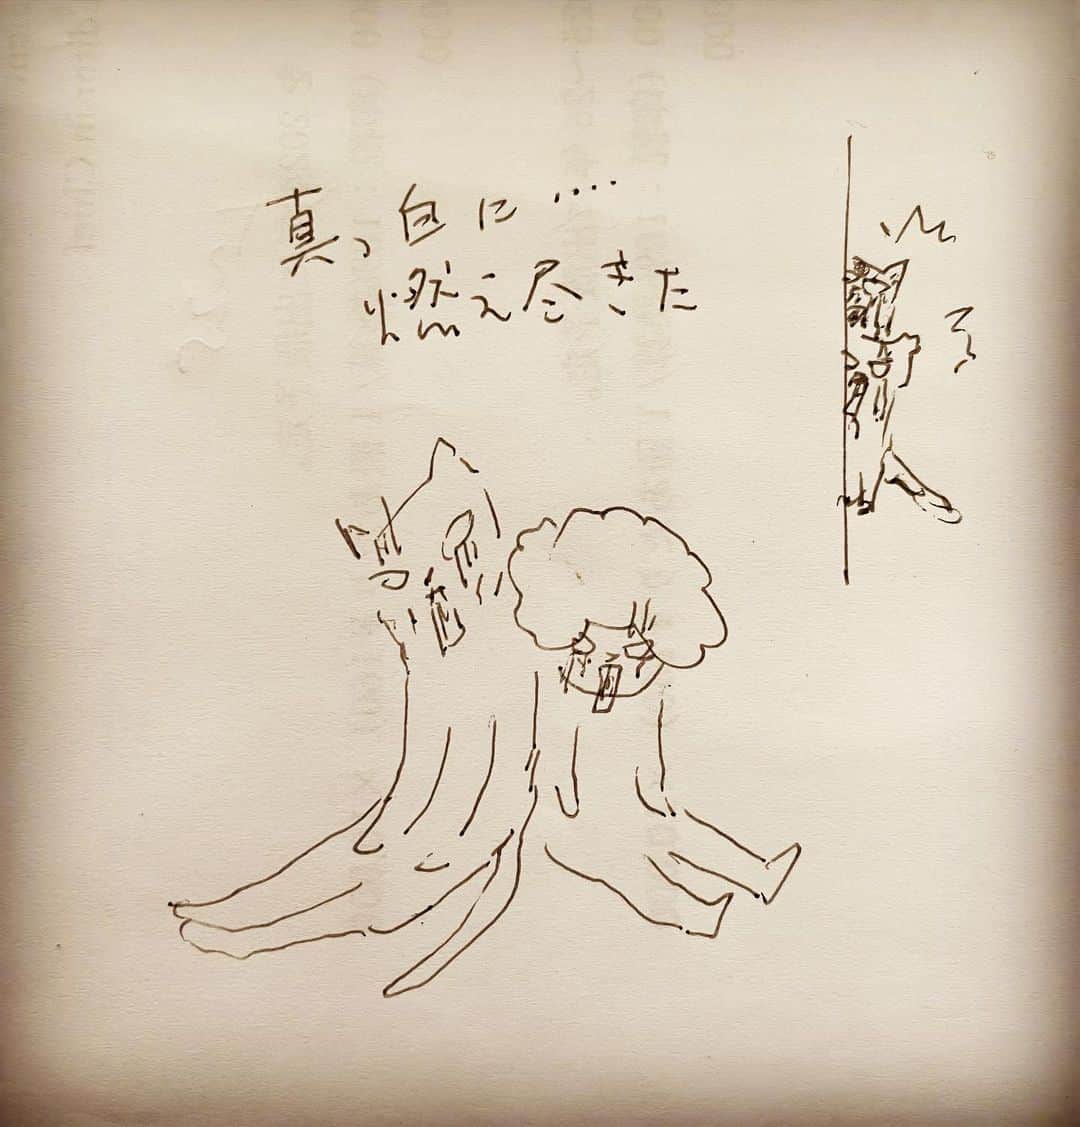 真っ白に‥‥
燃え尽きた